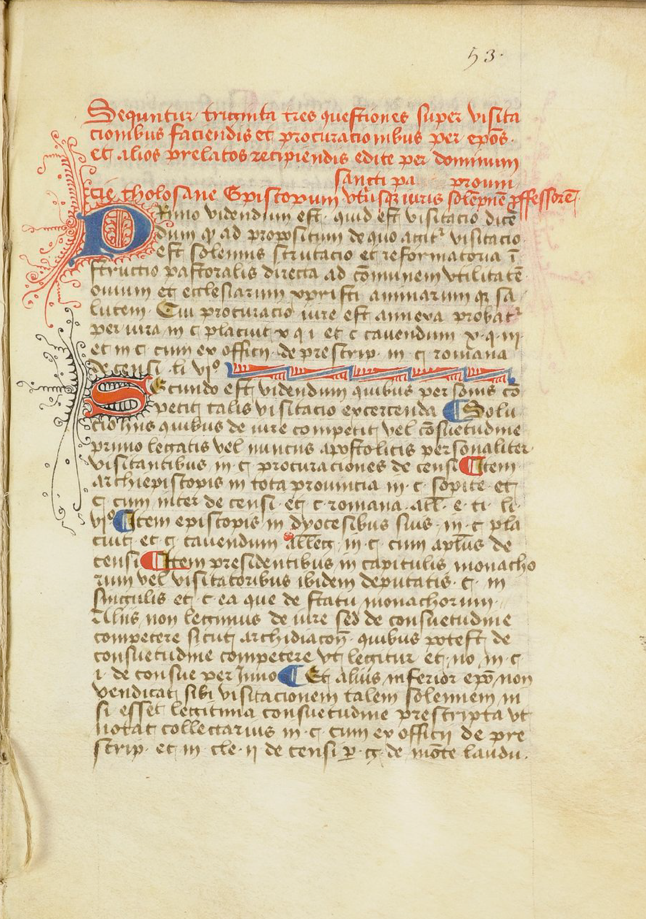 53.
Sequntur triginta tres questiones super visita
cionibus faciendis et procuracionibus per ep̄os
et alios prelatos recipiendis edite per dominum
sancti pa
cie tholosane Episcopum vtriusqȝ iuris solempnē ꝓffessorē
Primo videndum est quid est visitacio dicē
dum qꝫ ad propositum de quo agitᷣ visitacio
est solemnis scrutacio et reformatoria ī
structio pastoralis directa ad cōmunem vtilitatē
ouium et ecclesiarum xpristi animarum qȝ sa
lutem · Cui procuracio iure est annexa probatᷣ
per iura in c placuit x q i et c cauendum x · q · iii
et in c cum ex officii · de prescrip · in c romana
de censi · li viº
Secundo est videndum quibus personis cō
petit talis visitacio excercenda ¶ Solu
cionus quibus de iure competit vel cōsuetudine
primo legatis vel nuncijs apostolicis personaliter
visitantibus in c procuraciones de censi ¶ Item
archiepiscopis in tota prouincia in · c · sopite · et
c cum inter de censi · et c · romana · all̄ · e · ti · li ·
viº ¶ Item episcopis in dyocesibus suis · in · c pla
cuit et c cauendum all̄eg · in · c cum ap̄lus de
censi ¶ Item presidentibus in capitulis monacho
rum vel visitatoribus ibidem deputatis · c · in
singulis et · c · ea que de statu monachorum ·
Alijs non legimus de iure sed de consuetudine
competere sicuti archidiacon̄ · quibus potest de
consuetudine competere vt legitur et · no · in · c
i · de consue per Inno ¶ Et alius inferior ep̄o non
vendicat sibi visitacionem talem solennem ni
si esset legitima consuetudine prescripta vt
notat collectarius in · c · cum ex officii de pre
scrip · et in cle · ii de censi de mōte laudu ·